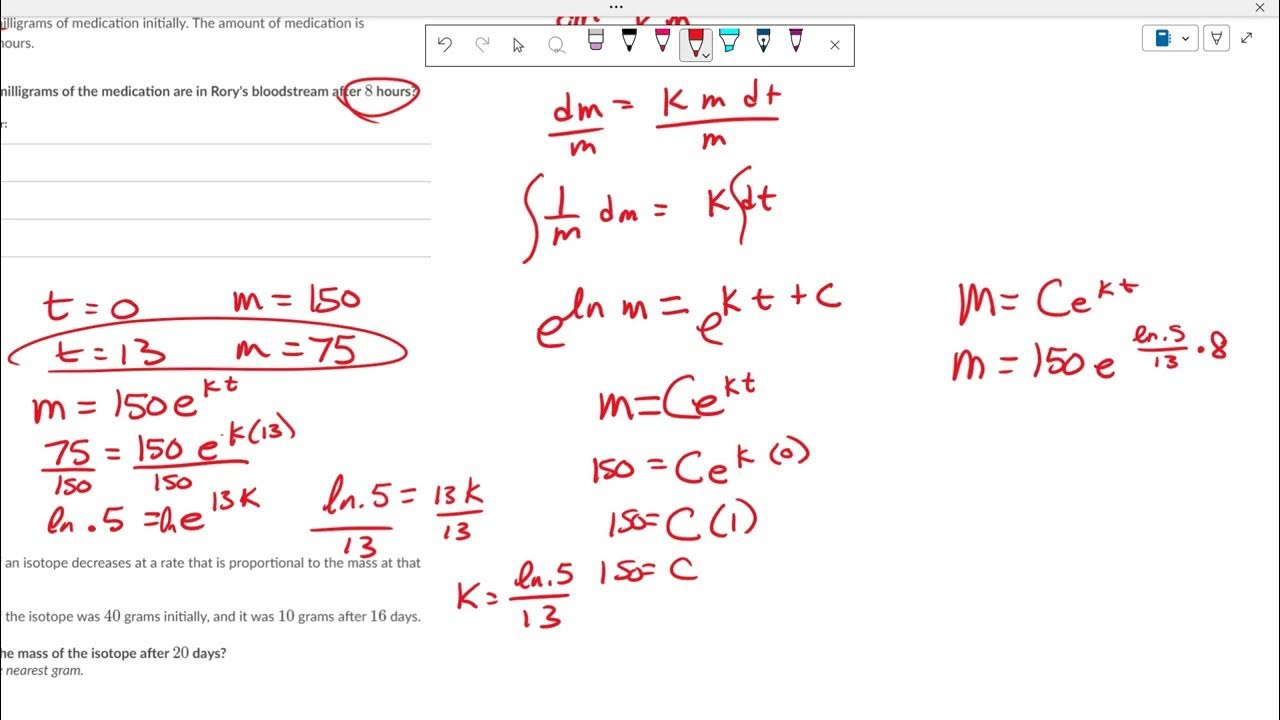 milligrams of medication initially. The amount of medication is
hours.
milligrams of the medication are in Rory's bloodstream after 8 hours?
r:
dm/m = K m dt/m
∫ 1/m dm = K∫dt
e^(ln m) = e^(kt + C)
m = Ce^(kt)
150 = Ce^(k(0))
150 = C(1)
150 = C
t = 0 m = 150
t = 13 m = 75
m = 150e^(kt)
75/150 = 150e^(k(13))/150
ln .5 = ln e^(13k)
ln .5/13 = 13k/13
K = ln .5/13
M = Ce^(kt)
m = 150e^(ln .5/13 · 8)
an isotope decreases at a rate that is proportional to the mass at that
the isotope was 40 grams initially, and it was 10 grams after 16 days.
he mass of the isotope after 20 days?
nearest gram.